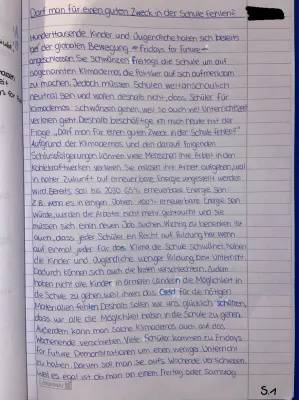 Darf man für einen guten Zweck in der Schule fehlen?
Hunderttausende Kinder und Jugendliche haben sich bereits
bei der globalen Bewegung »Fridays for future«
angeschlossen. Sie schwänzen Freitags die Schule um auf
sogenannten Klimademos die Politiker auf sich aufmerksam
zu machen. Jedoch müssen Schulen weltanschaulich
neutral sein und wollen deshalb nicht, dass Schüler für
Klimademos schwänzen gehen, weil so auch viel Unterrichtszeit
verloren geht. Deshalb beschäftige ich mich heute mit der
Frage „Darf man für einen guten Zweck in der Schule fehlen?"
Aufgrund der Klimademos und den darauf folgenden
Schlussfolgerungen können viele Menschen ihre Arbeit in den
Kohlekraftwerken verlieren. Sie müssen ihre Arbeit aufgeben, weil
in naher Zukunft auf erneuerbare Energie umgestellt werden
wird. Bereits soll bis 2030 65% erneuerbare Energie sein.
Z.B. wenn es in einigen Jahren 100% erneuerbare Energie sein
würde, werden die Arbeiter nicht mehr gebraucht und sie
müssen sich einen neuen Job suchen. Wichtig zu bedenken ist
auch, dass jeder Schüler ein Recht auf Bildung hat. Wenn
auf einmal jeder für das Klima die Schule schwänzt, haben
die Kinder und Jugendliche weniger Bildung bzw. Unterricht.
Dadurch können sich auch die Noten verschlechtern. Zudem
haben nicht alle Kinder in ärmeren Ländern die Möglichkeit in
die Schule zu gehen, weil ihnen das Geld für die nötigen
Materialien fehlen. Deshalb sollen wir uns glücklich schätzen,
dass wir alle die Möglichkeit haben in die Schule zu gehen.
Außerdem kann man solche Klimademos auch auf das
Wochenende verschieben. Viele Schüler kommen zu Fridays
for Future Demonstrationen um einen weniger Unterricht
zu haben. Darum soll man sie aufs Wochenende verschieben,
weil es egal ist ob man an einem Freitag oder Samstag
S.1